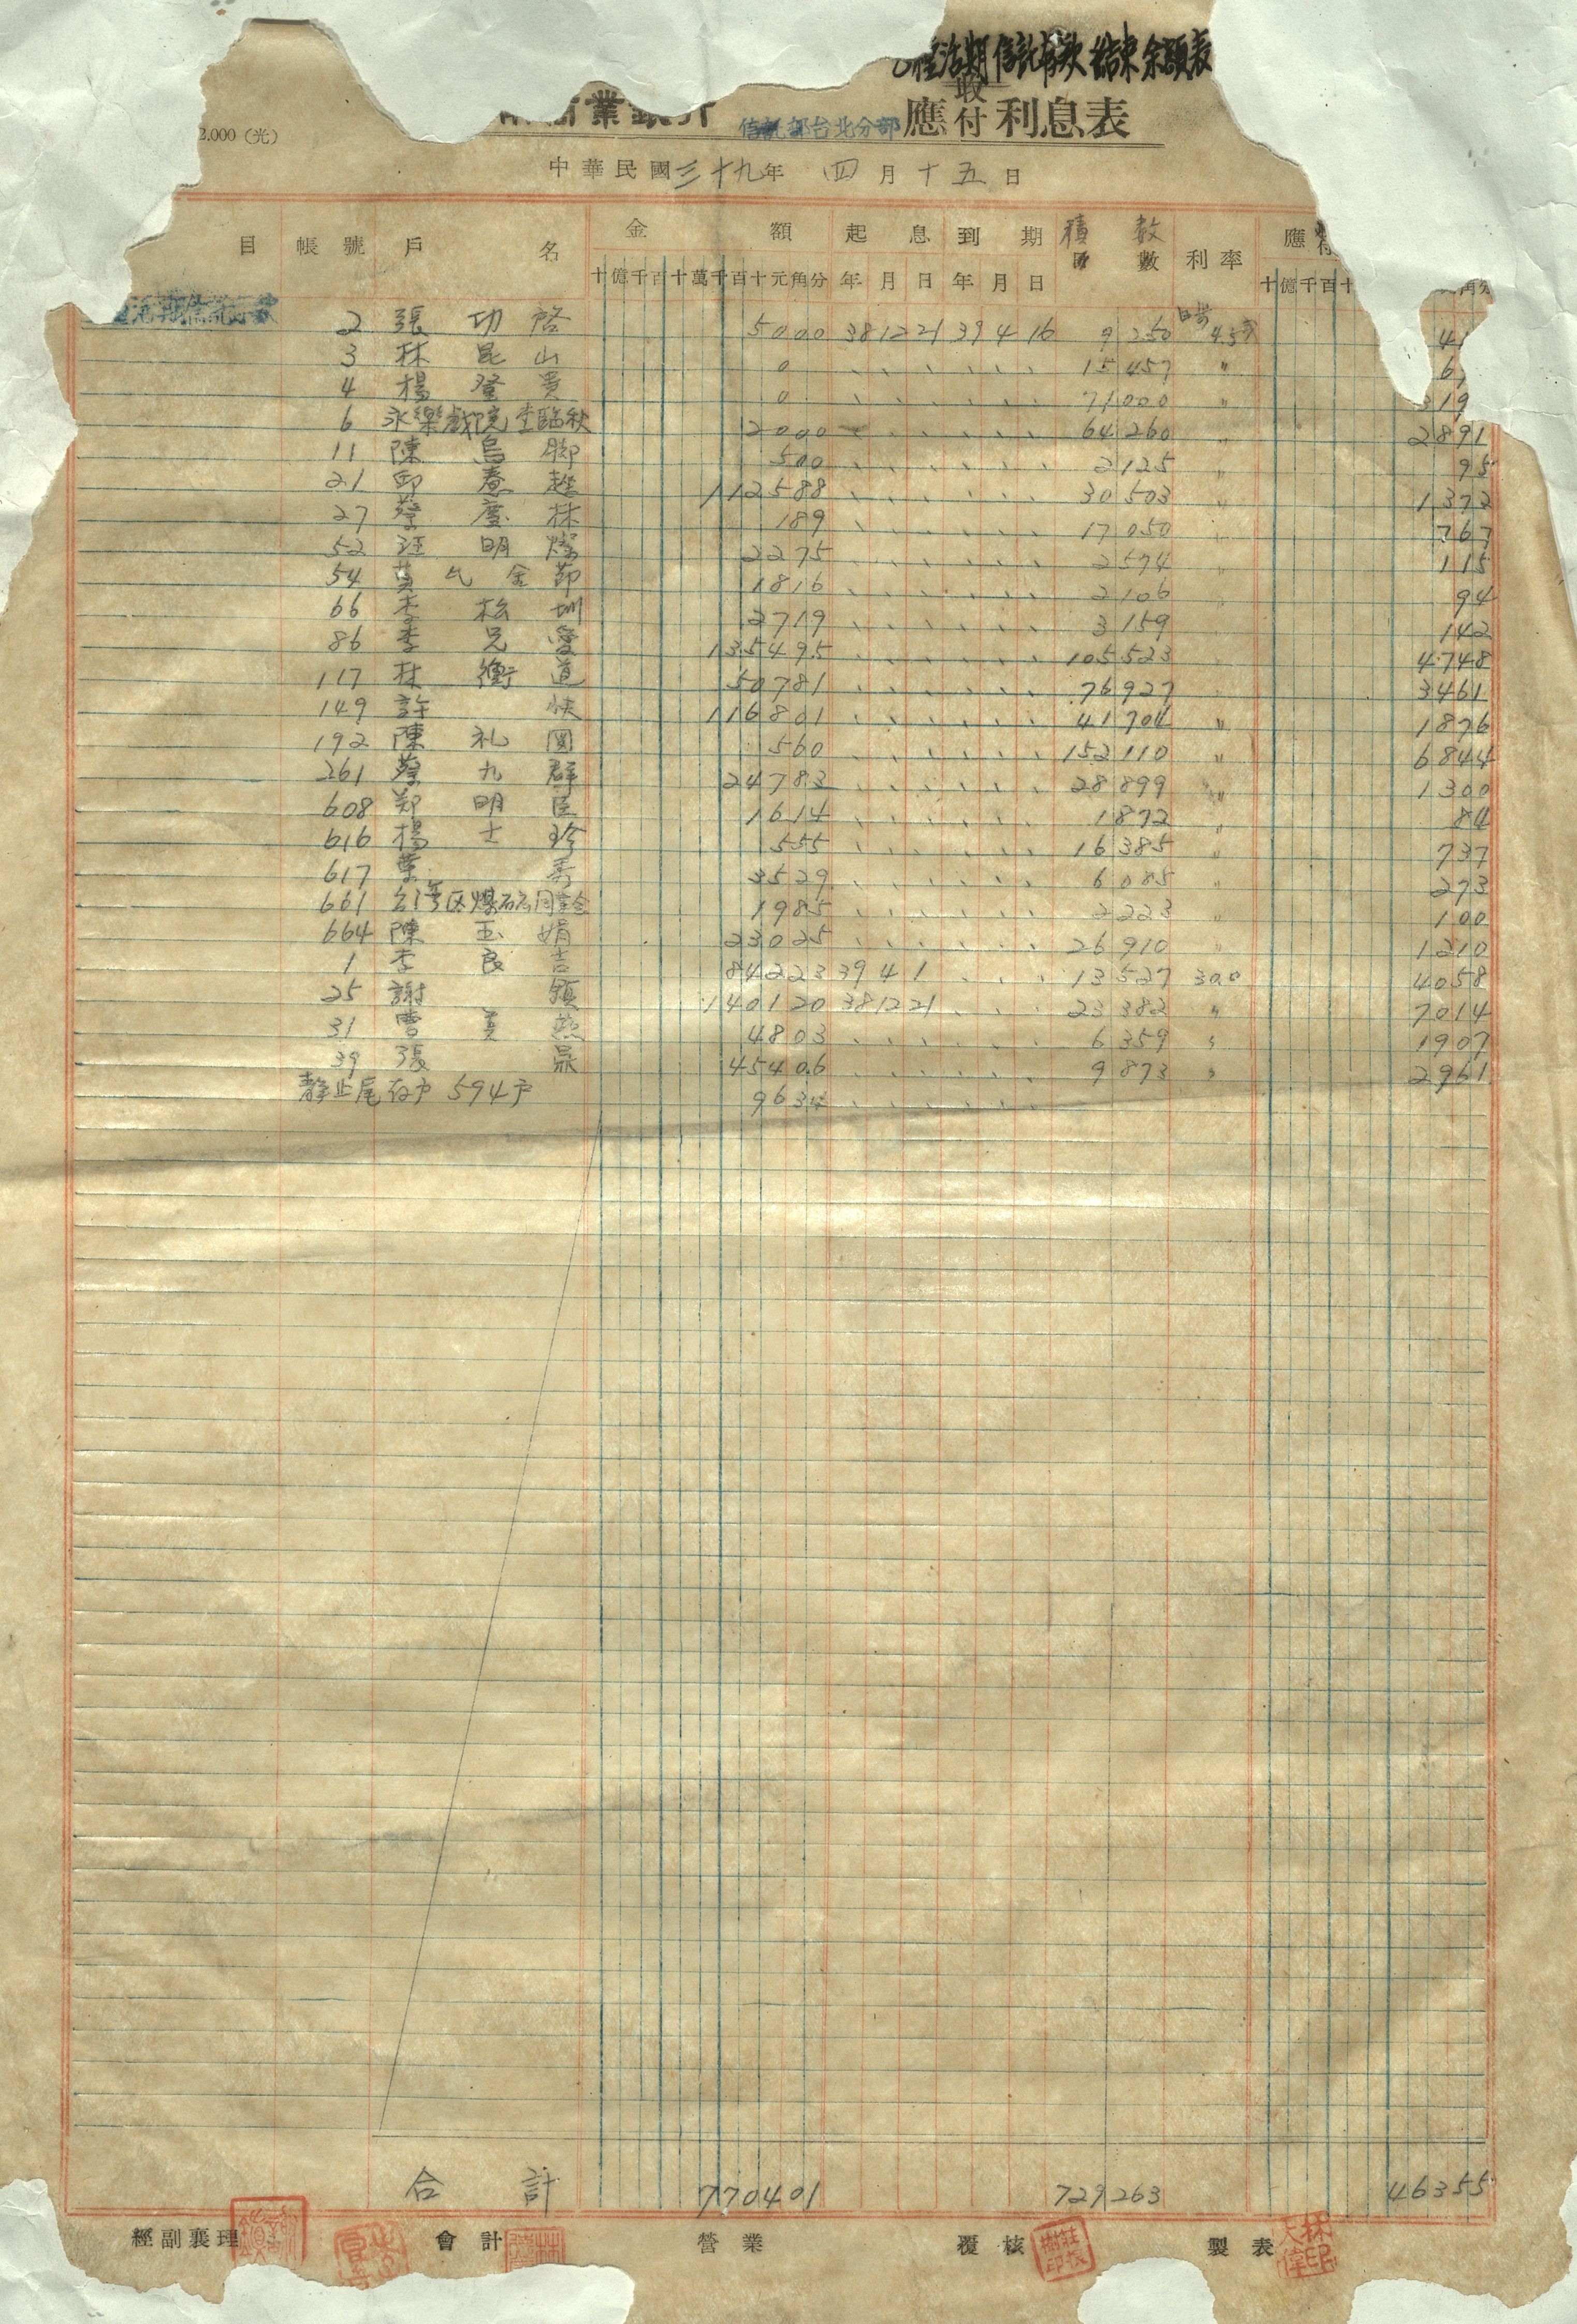 種活期信託存款結束余額表
商業銀行 信託部台北分部 應收付利息表
2.000 (光)
中華民國三十九年 四月十五日
目 帳號 戶名 金額 起息 到期 積數 利率 應付
十億千百十萬千百十元角分 年月日 年月日 日數 十億千百十
活期信託存款 2 張功啓 5000 38 12 21 39 4 16 9250 日步 4.5
3 林昆山 0 、、、、、、 15457 〃
4 楊登貴 0 、、、、、、 71000 〃 319
6 永樂戲院 2000 、、、、、、 64260 〃 2891
11 陳烏腳 500 、、、、、、 2125 〃 95
21 邱 112588 、、、、、、 30503 〃 1372
27 蔡慶林 189 、、、、、、 17050 〃 767
52 汪明燦 2275 、、、、、、 2574 〃 115
54 黃氏金節 1816 、、、、、、 2106 94
66 李松圳 2719 、、、、、、 3159 142
86 李兄愛 135495 、、、、、、 105523 4748
117 林衡道 50781 、、、、、、 76927 3461
149 許快 116801 、、、、、、 41704 〃 1876
192 陳礼圖 560 、、、、、、 152110 〃 6844
261 蔡九群 24783 、、、、、、 28899 〃 1300
608 鄭明臣 1614 、、、、、、 1872 〃 84
616 楊士珍 555 、、、、、、 16385 〃 737
617 葉秀 3529 、、、、、、 6085 〃 273
661 台湾区煤石 1985 、、、、、、 2223 〃 100
664 陳玉娟 23025 、、、、、、 26910 〃 1210
1 李良吉 84223 39 4 1 、、、 13527 30.0 4058
25 謝領 140120 38 12 21 、、、 23382 〃 7014
31 曹美燕 4803 、、、、、、 6359 〃 1907
39 張鼎 45406 、、、、、、 9873 〃 2961
靜止尾存户 594户 9634 、、、、、、
合計 770401 729263 46355
經副襄理 會計 營業 覆核 製表